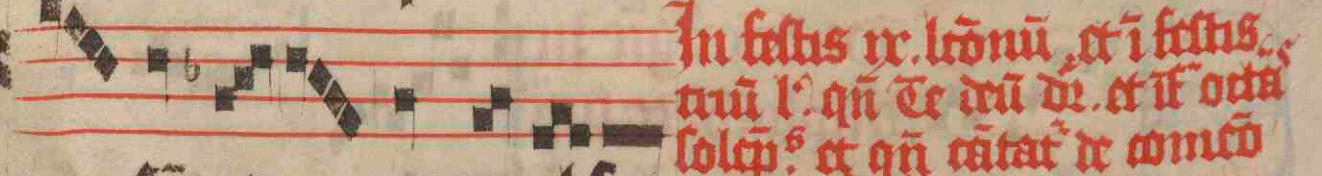 In festis ix. lc̄onū et ī festis
triū lᵒ. qn̄ Te deū dr̄. et īt octa
solēp̄ˢ. et qn̄ cātat᷑ de com̄eō